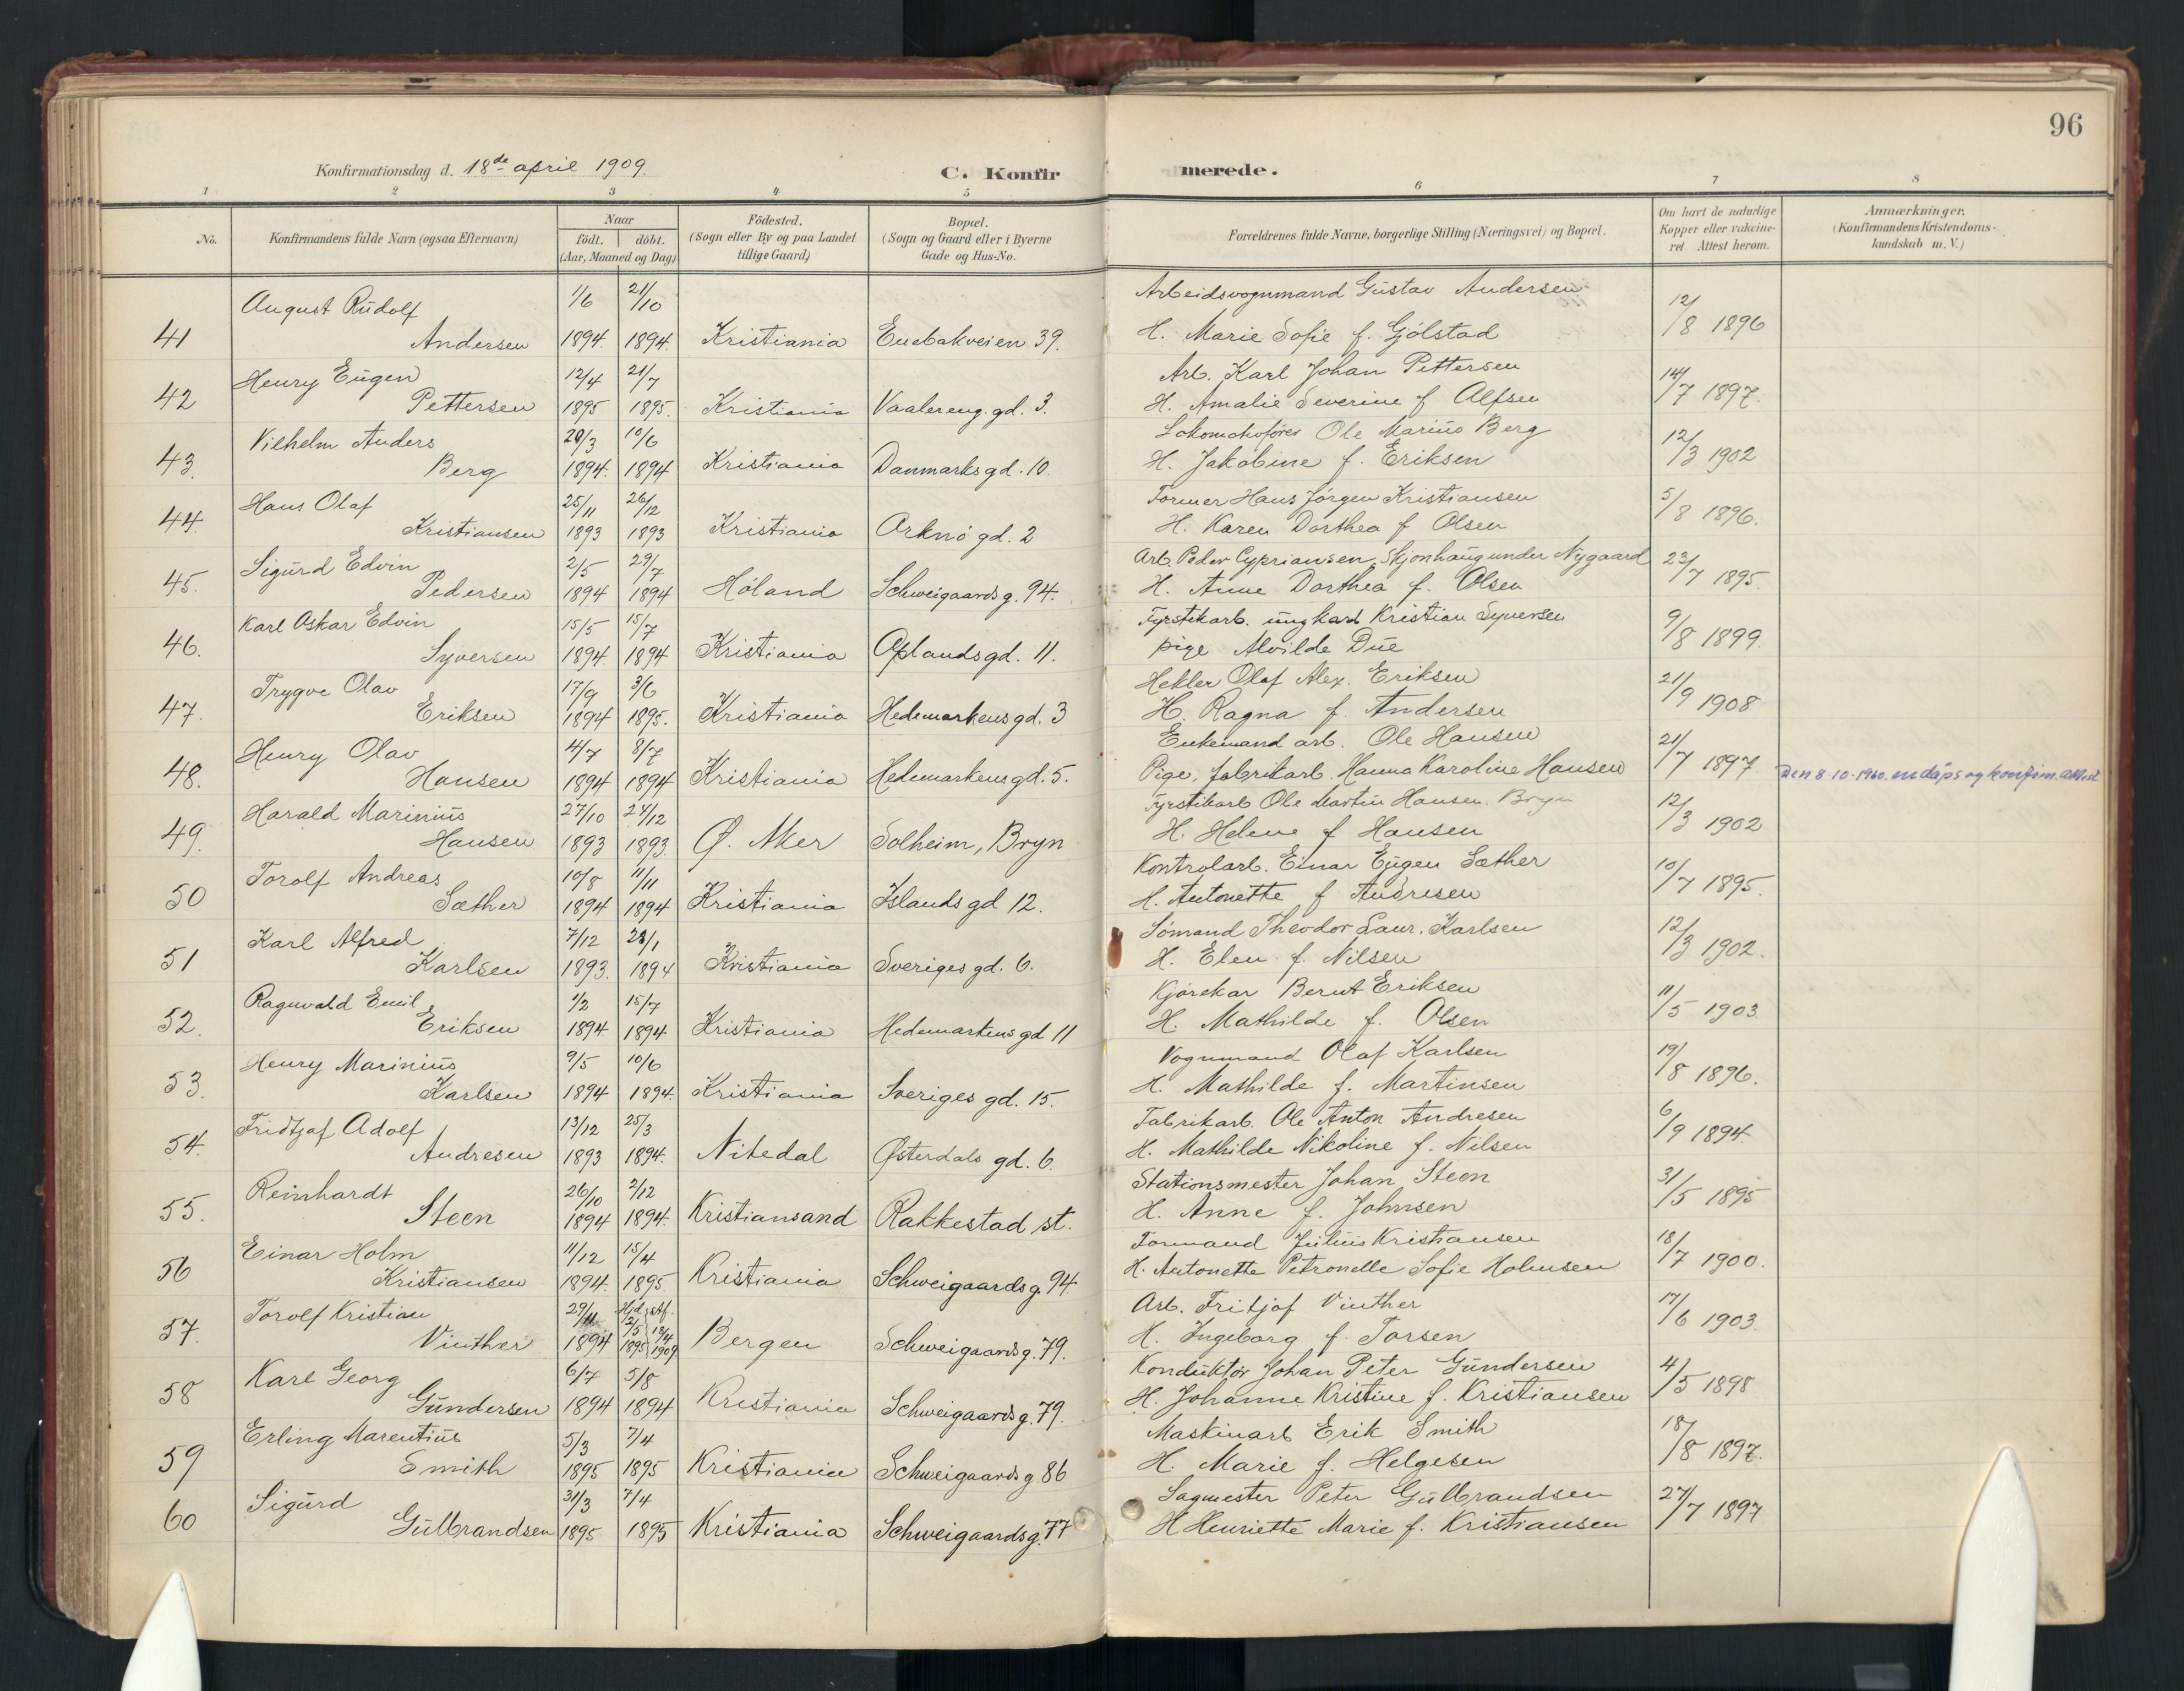 96
Konfirmationsdag d. 18de april 1909.
C. Konfirmerede.
1 2 3 4 5 6 7 8
No.
Konfirmandens fulde Navn (ogsaa Efternavn)
Naar
født. | døbt.
(Aar, Maaned og Dag)
Fødested.
(Sogn eller By og paa Landet
tillige Gaard)
Bopæl.
(Sogn og Gaard eller i Byerne
Gade og Hus-No.
Forældrenes fulde Navne, borgerlige Stilling (Næringsvei) og Bopæl.
Om havt de naturlige
Kopper eller vaccine-
ret. Attest herom.
Anmærkninger.
(Konfirmandens Kristendoms-
kundskab m. V.)
August Rudolf 1/6 21/10 Arbeidsvognmand Gustav Andersen 12/8 1896
41 Andersen 1894. 1894. Kristiania Enebakveien 39. H. Marie Sofie f. Gjølstad
Henry Eugen 12/4 21/7 Arb. Karl Johan Pettersen 14/7 1897.
42 Pettersen 1895 1895. Kristiania Vaalereng. gd. 3. H. Amalie Severine f Alfsen
Vilhelm Anders 20/3 10/6 Lokomotivfører Ole Marius Berg 12/3 1902
43. Berg 1894. 1894 Kristiania Danmarks gd. 10. H. Jakobine f. Eriksen
Hans Olaf 25/11 26/12 Former Hans Jørgen Kristiansen 5/8 1896.
44. Kristiansen 1893 1893 Kristiania Arknø gd. 2 H. Karen Dorthea f Olsen
Sigurd Edvin 2/5 29/7 Arb. Peder Cypriansen, Skjønhaug under Nygaard 23/7 1895.
45. Pedersen 1894 1894 Høland Schweigaards g. 94. H. Anne Dorthea f. Olsen
Karl Oskar Edvin 15/5 15/7 Fyrstikarb. ungkarl Kristian Syversen 9/8 1899.
46. Syversen 1894. 1894 Kristiania Oplands gd. 11. pige Alvilde Due
Trygve Olav 17/9 3/6 Hekler Olaf Alex. Eriksen 21/9 1908
47. Eriksen 1894 1895. Kristiania Hedemarkens gd. 3 H. Ragna f. Andersen
Henry Olav 4/7 8/7 Enkemand arb. Ole Hansen 21/7 1897
48. Hansen 1894 1894 Kristiania Hedemarkens gd. 5. Pige, fabrikarb. Hanna Karoline Hansen Den 8-10-1960. en dåps og konfirm. attest
Harald Marinius 27/10 24/12 Fyrstikarb Ole Martin Hansen. Bryn 12/3 1902
49. Hansen 1893 1893. Ø. Aker Solheim, Bryn H. Helene f Hansen
Torolf Andreas 10/8 11/11 Kontrolarb. Einar Eugen Sæther 10/7 1895.
50 Sæther 1894 1894 Kristiania Islands gd 12. H. Antonette f Andresen
Karl Alfred 7/12 28/1 Sømand Theodor Laur. Karlsen 12/3 1902.
51 Karlsen 1893. 1894 Kristiania Sveriges gd. 6. H. Elen f. Nilsen
Ragnvald Emil 1/2 15/7 Kjørekar Bernt Eriksen 11/5 1903
52. Eriksen 1894. 1894 Kristiania Hedemarkens gd 11 H. Mathilde f. Olsen
Henry Marinius 9/5 10/6 Vognmand Olaf Karlsen 19/8 1896.
53. Karlsen 1894 1894. Kristiania Sveriges gd. 15. H. Mathilde f. Martinsen
Fridtjof Adolf 13/12 25/3 Fabrikarb. Ole Anton Andresen 6/9 1894.
54. Andresen 1893 1894. Nitedal Østerdals gd. 6. H. Mathilde Nikoline f. Nilsen
Reinhardt 26/10 2/12 Stationsmester Johan Steen 31/5 1895
55. Steen 1894 1894. Kristiansand Rakkestad st. H. Anne f. Johnsen
Einar Holm 11/12 15/4 Formand Julius Kristiansen 18/7 1900.
56 Kristiansen 1894. 1895 Kristiania Schweigaards g. 94. H. Antonette Petronelle Sofie Holmsen
Torolf Kristian 29/11 Hjd. 2/5 1895 stf. 13/4 1909 Arb. Fritjof Vinther 17/6 1903.
57. Vinther 1894 Bergen Schweigaards g. 79. H. Ingeborg f. Torsen
Karl Georg 6/7 5/8 Konduktør Johan Peter Gundersen 4/5 1898
58 Gundersen 1894 1894 Kristiania Schweigaards g. 79. H. Johanne Kristine f. Kristiansen
Erling Marentius 5/3 7/4 Maskinarb Erik Smith 18/8 1897.
59 Smith 1895 1895 Kristiania Schweigaards g 86 H. Marie f. Helgesen
Sigurd 31/3 7/4 Sagmester Peter Gulbrandsen 27/7 1897
60 Gulbrandsen 1895 1895 Kristiania Schweigaards g. 77 H Henriette Marie f. Kristiansen